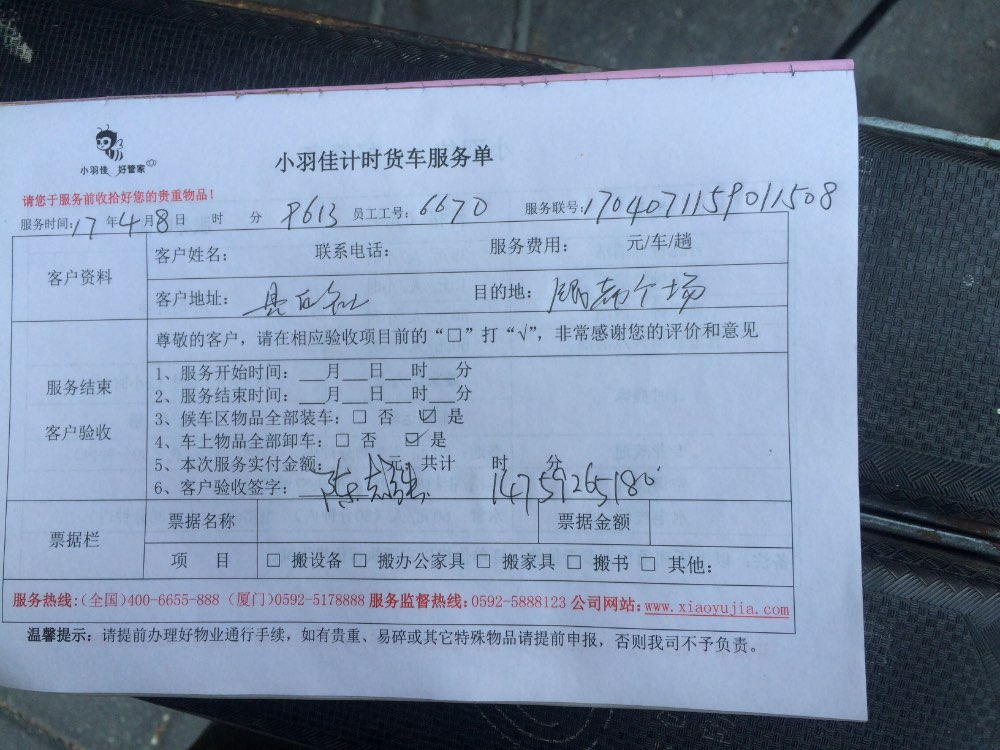 小羽佳 好管家
小羽佳计时货车服务单
请您于服务前收拾好您的贵重物品！
服务时间：17年4月8日 时 分 P613 员工工号：6670 服务联号：1704071159011508
客户资料
客户姓名： 联系电话： 服务费用： 元/车/趟
客户地址： 目的地：
服务结束
客户验收
尊敬的客户，请在相应验收项目前的“□”打“√”，非常感谢您的评价和意见
1、服务开始时间：___月___日___时___分
2、服务结束时间：___月___日___时___分
3、候车区物品全部装车：□ 否 ☑ 是
4、车上物品全部卸车：□ 否 ☑ 是
5、本次服务实付金额： 元，共计 时 分
6、客户验收签字： 14759265180
票据栏
票据名称 票据金额
项 目 □ 搬设备 □ 搬办公家具 □ 搬家具 □ 搬书 □ 其他：
服务热线：(全国)400-6655-888 (厦门)0592-5178888 服务监督热线：0592-5888123 公司网站：www.xiaoyujia.com
温馨提示：请提前办理好物业通行手续，如有贵重、易碎或其它特殊物品请提前申报，否则我司不予负责。